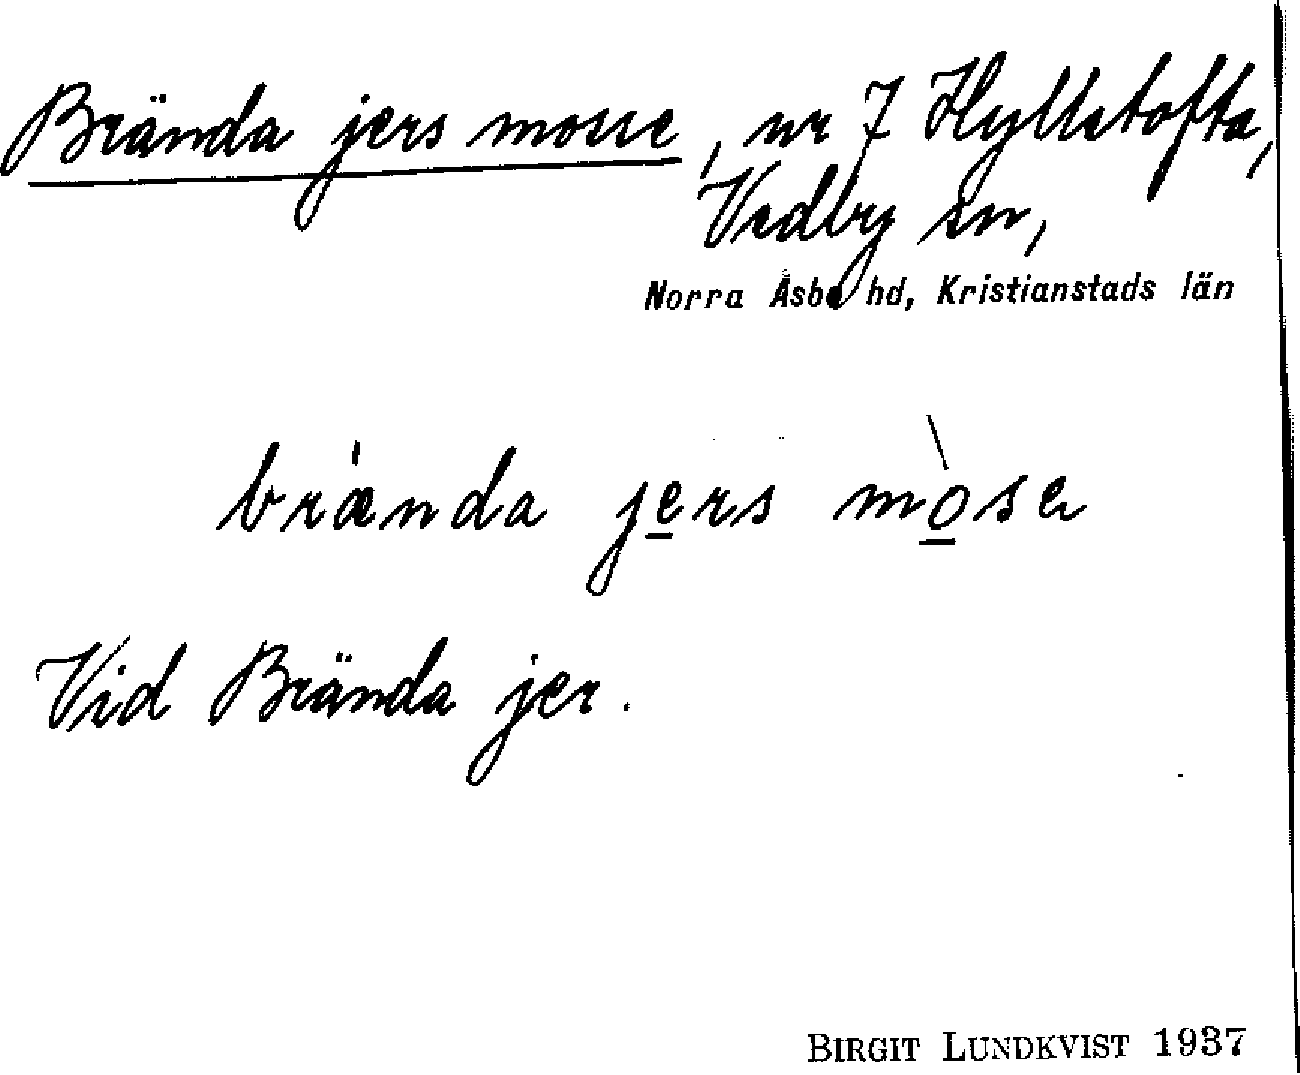 Brända jers mosse, nr 7 Hyllstofta,
Vedby sn,
Norra Åsbo hd, Kristianstads län
bræ̀nda je̲rs mò̲sa
Vid Brända jer.
BIRGIT LUNDKVIST 1937